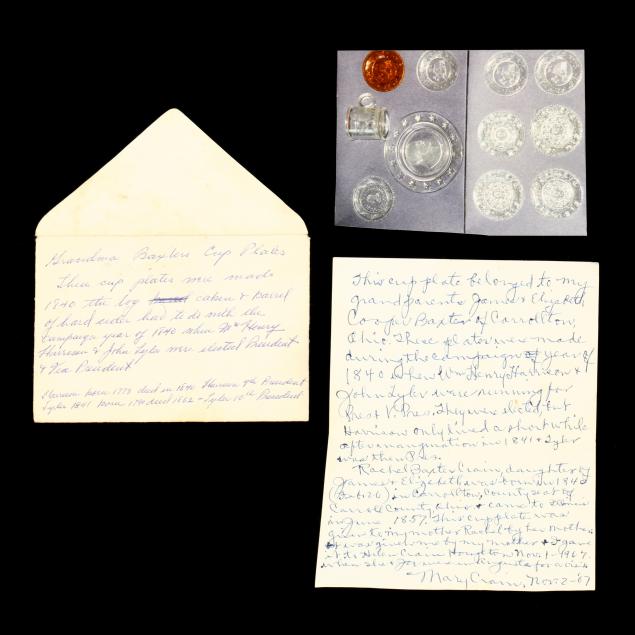 Grandma Baxters Cup Plates
These cup plates were made
1840 the log cabin & Barrel
of hard cider had to do with the
campaign year of 1840 when Wm Henry
Harrison & John Tyler were elected President
& Vice President
Harrison born 1773 died in 1840 Harrison 9th President
Tyler 1841 born 1790 died 1862 - Tyler 10th President
This cup plate belonged to my
grandparents James & Elizabeth
Cooper Baxter of Carrollton,
Ohio. These plates were made
during the campaign of year of
1840 when Wm. Henry Harrison &
John Tyler were running for
Pres & V. Pres. They were elected, but
Harrison only lived a short while
after inauguration in 1841 & Tyler
was then Pres.
Rachel Baxter Crain, daughter of
James & Elizabeth was born in 1842
in Carrollton, County seat of
Carroll County, Ohio & came to
in June 1857. This cup plate was
given to my mother Rachel by her mother
& was given me by my mother & I gave
it to Helen Crain Houghton Nov. 1 - 1967
when she & were in Augusta for a visit
Mary Crain, Nov. 2 - '67